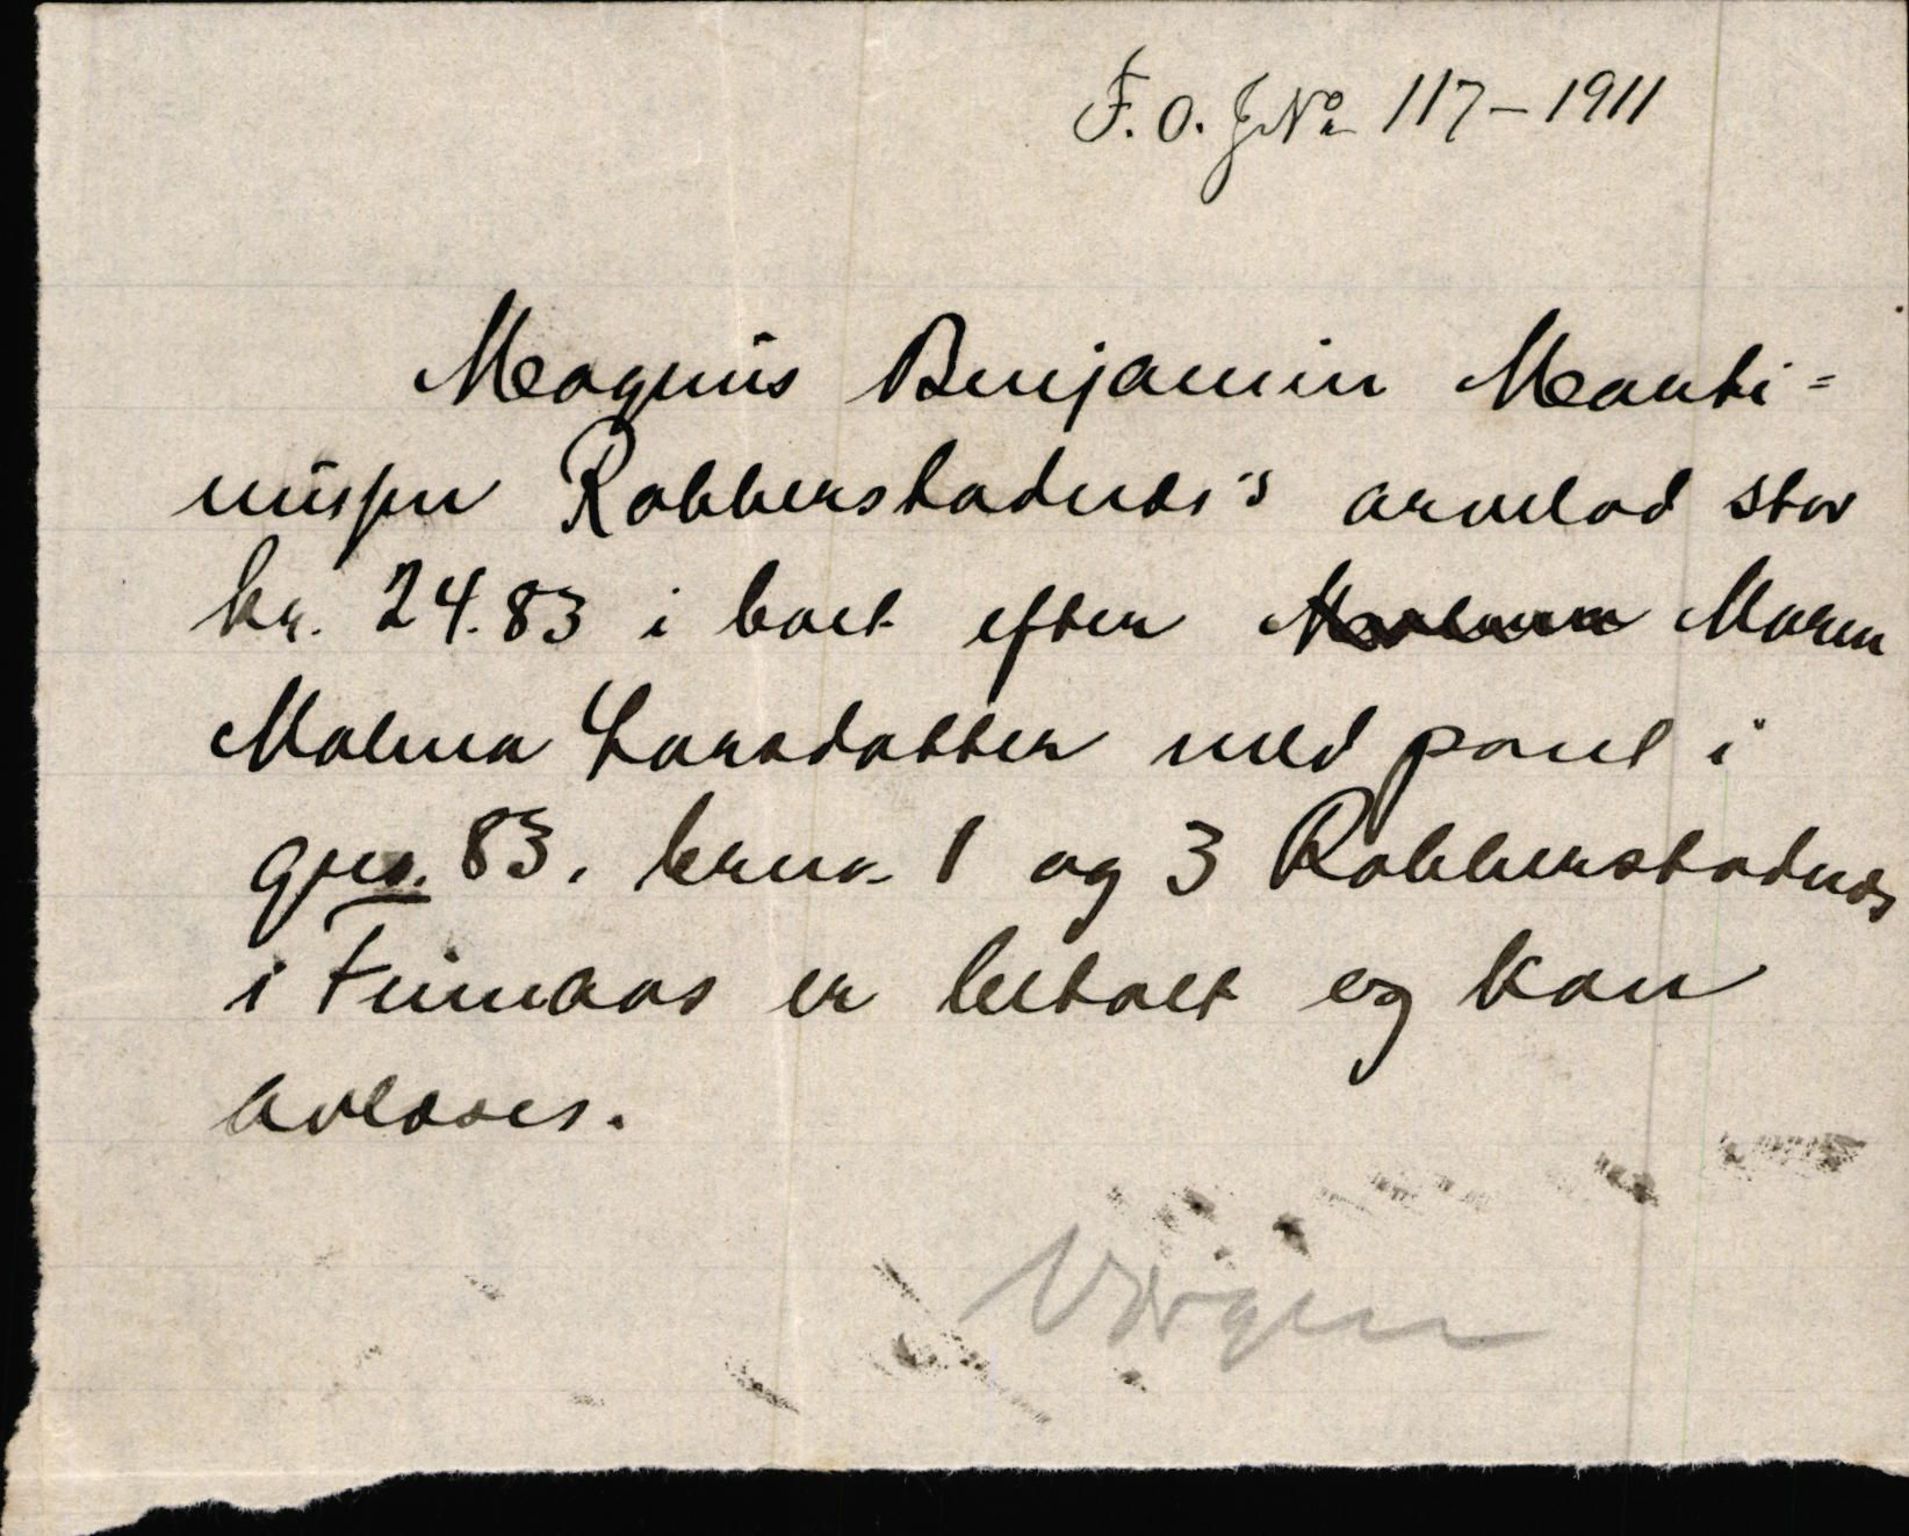 F. O. J No 117 – 1911
Magnus Benjamin Marti=
nussen Robberstadnes's arvelod stor
kr. 24.83 i boet efter Maren
Malena Larsdatter med pant i
gno. 83. brno. 1 og 3 Robberstadnes
i Finnaas er betalt og kan
avlæses.